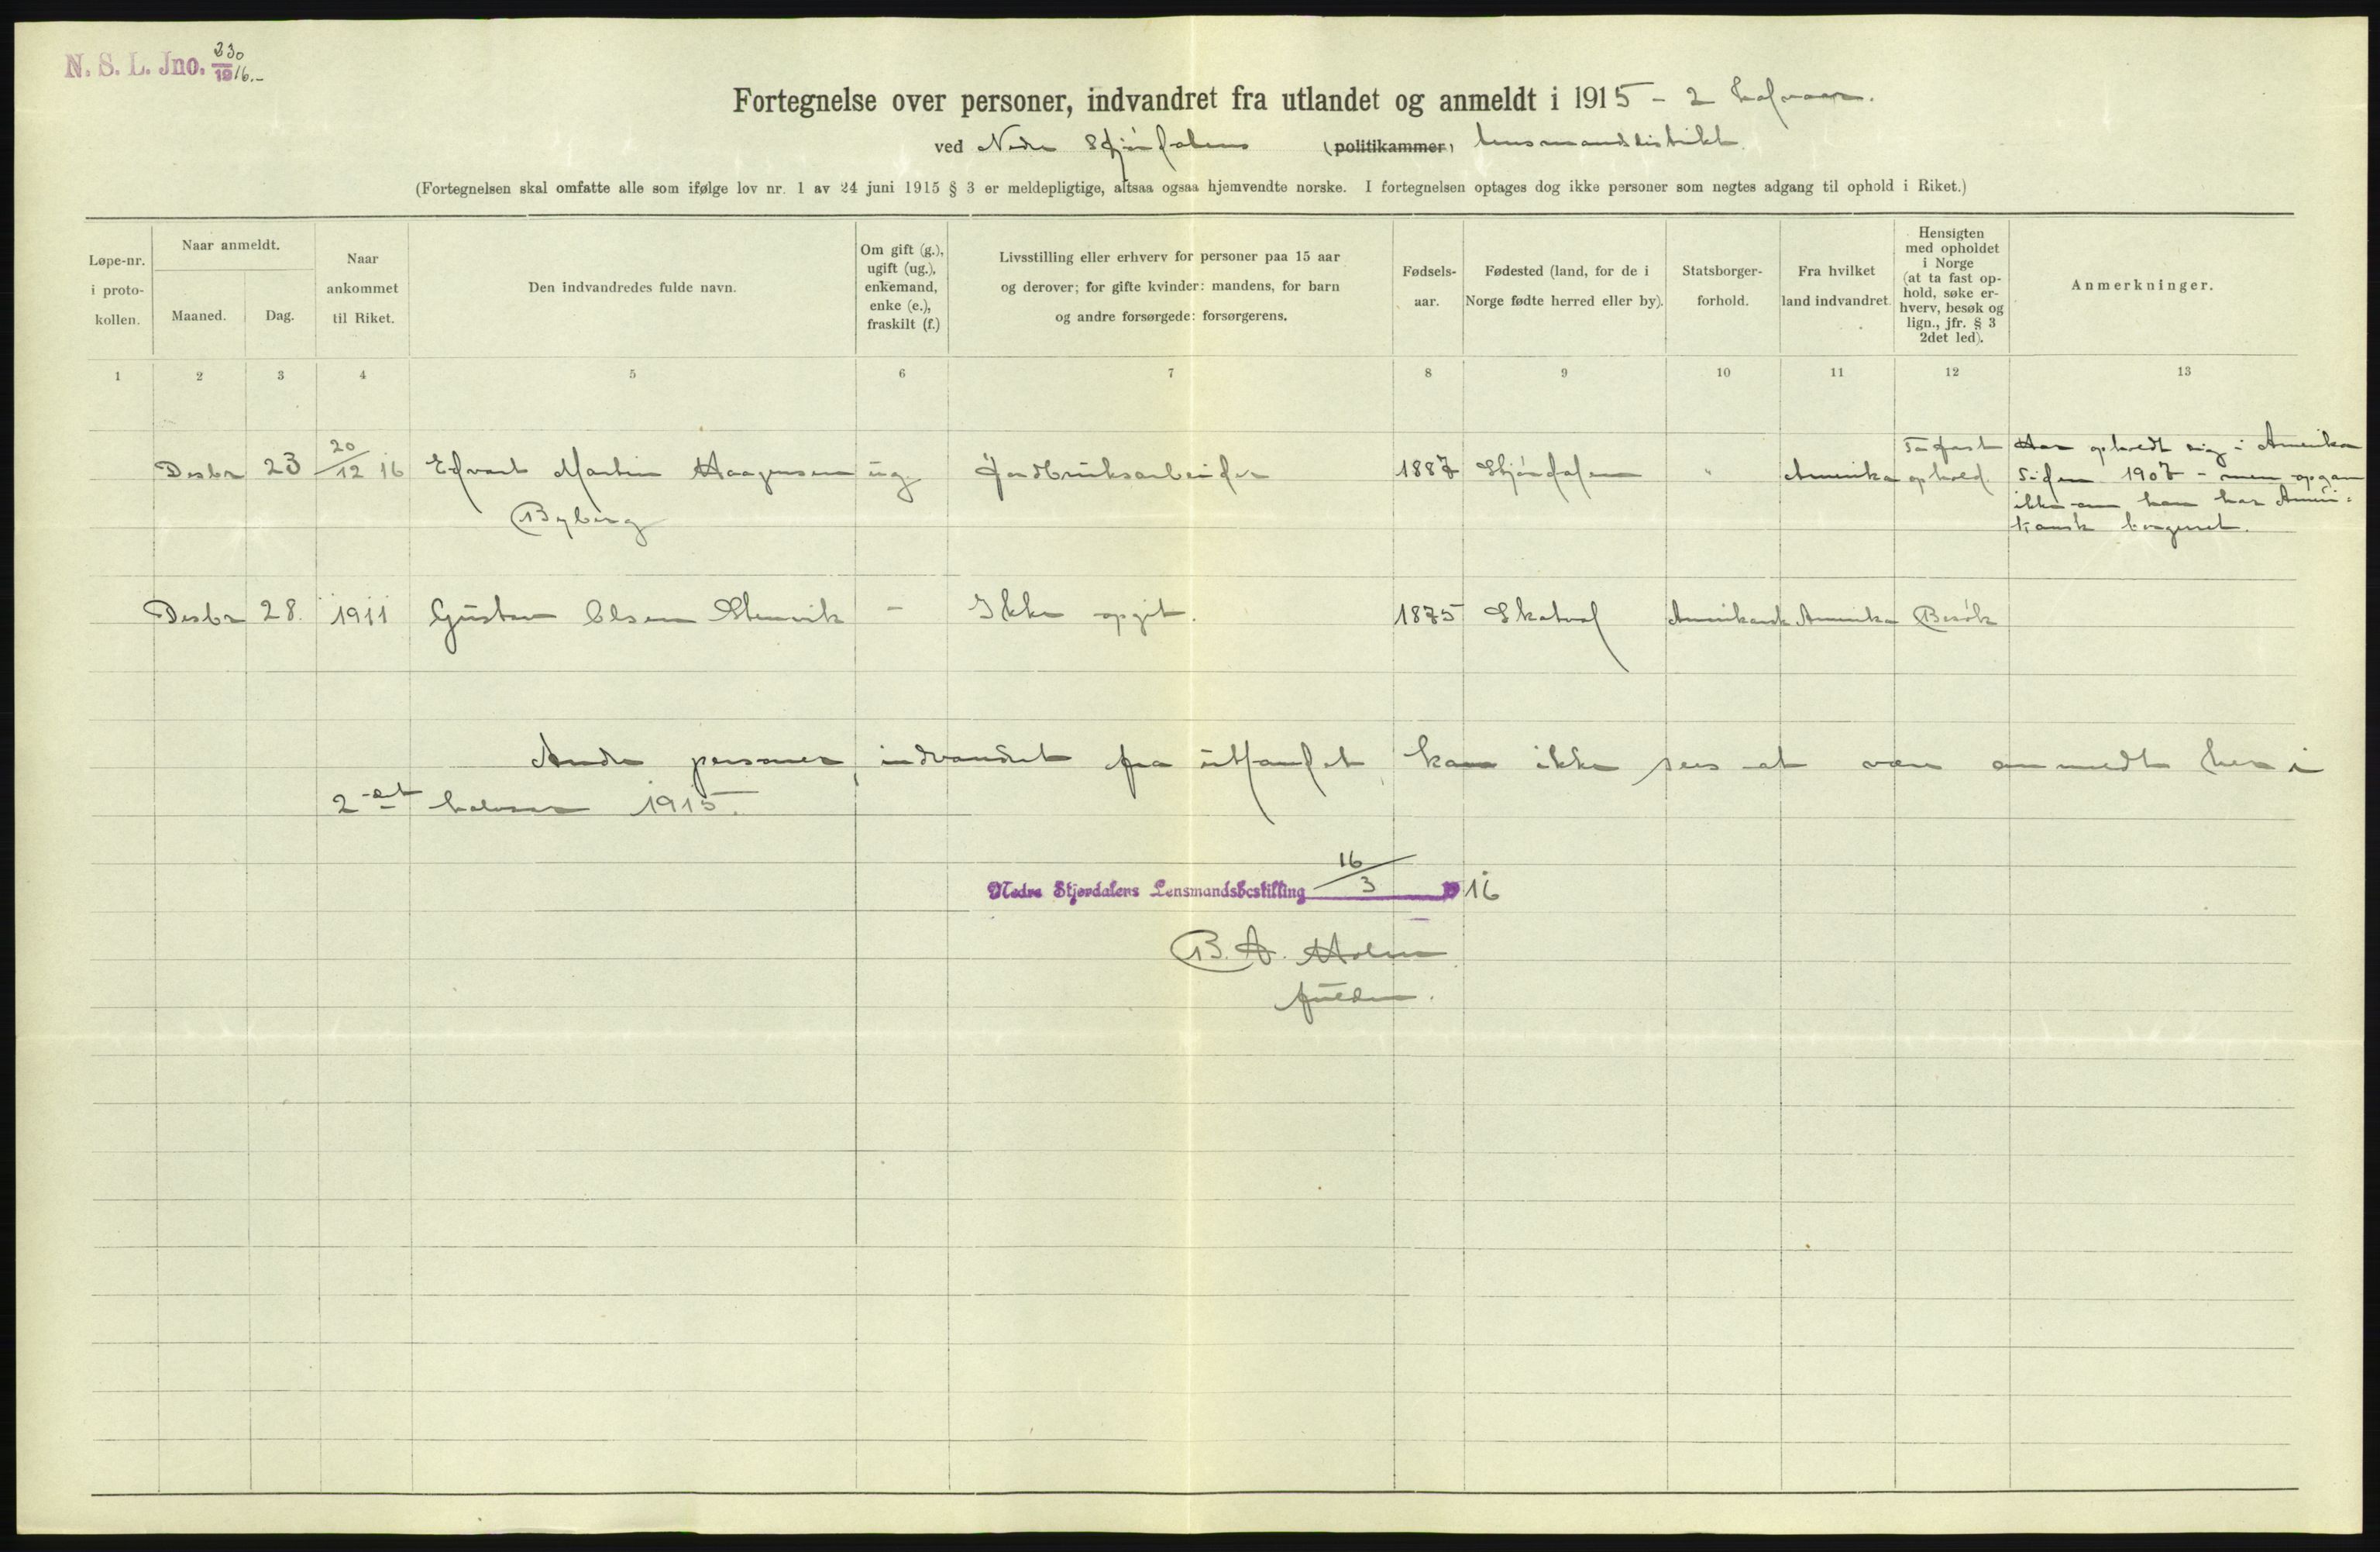 N. S. L. Jno. 230
1916.-
Fortegnelse over personer, indvandret fra utlandet og anmeldt i 1915 - 2 halvaar.
ved Nedre Stjørdalens (politikammer) lensmandsdistrikt.
(Fortegnelsen skal omfatte alle som ifølge lov nr. 1 av 24 juni 1915 § 3 er meldepligtige, altsaa ogsaa hjemvendte norske. I fortegnelsen optages dog ikke personer som negtes adgang til ophold i Riket.)
Løpe-nr. i proto-kollen.
Naar anmeldt.
Maaned.
Dag.
Naar ankommet til Riket.
Den indvandredes fulde navn.
Om gift (g.), ugift (ug.), enkemand, enke (e.), fraskilt (f.)
Livsstilling eller erhverv for personer paa 15 aar og derover; for gifte kvinder: mandens, for barn og andre forsørgede: forsørgerens.
Fødsels-aar.
Fødested (land, for de i Norge fødte herred eller by).
Statsborger-forhold.
Fra hvilket land indvandret.
Hensigten med opholdet i Norge (at ta fast op-hold, søke er-hverv, besøk og lign., jfr. § 3 2det led).
Anmerkninger.
1 2 3 4 5 6 7 8 9 10 11 12 13
Desbr 23 20/12 16 Edvart Martin Haagensen ug Jordbruksarbeider 1887 Stjørdalen " Amerika Ta fast ophold. Har opholdt sig i Amerika
Byberg siden 1907 - men opgav
ikke om han har Ameri-
kansk borgerret.
Desbr 28. 1911 Gustav Olsen Stenvik - Ikke opgit. 1875 Skatval Amerikansk Amerika Besøk
Andre personer, indvandret fra utlandet, kan ikke sees at være anmeldt her i
2-det halvaar 1915.
Nedre Stjørdalens Lensmandsbestilling 16/3 1916
B. A. Holm
fuldm.